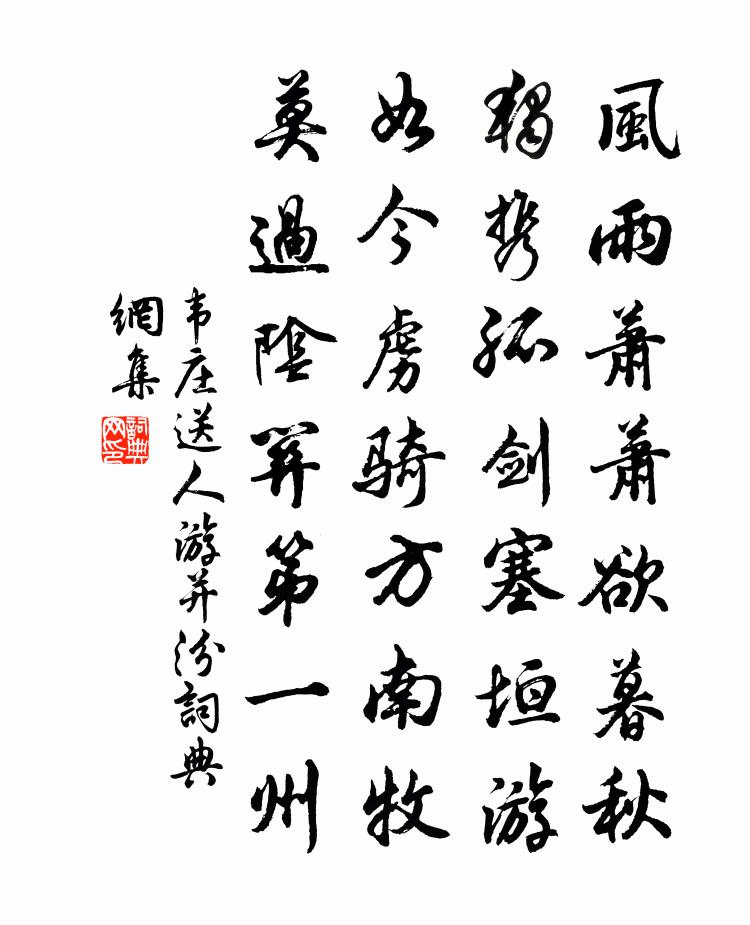 風雨蕭蕭欲暮秋
獨携孤剑塞垣游
如今虜騎方南牧
莫過陰關第一州
韦庄送人游并汾詞典
網集
詞典
网印